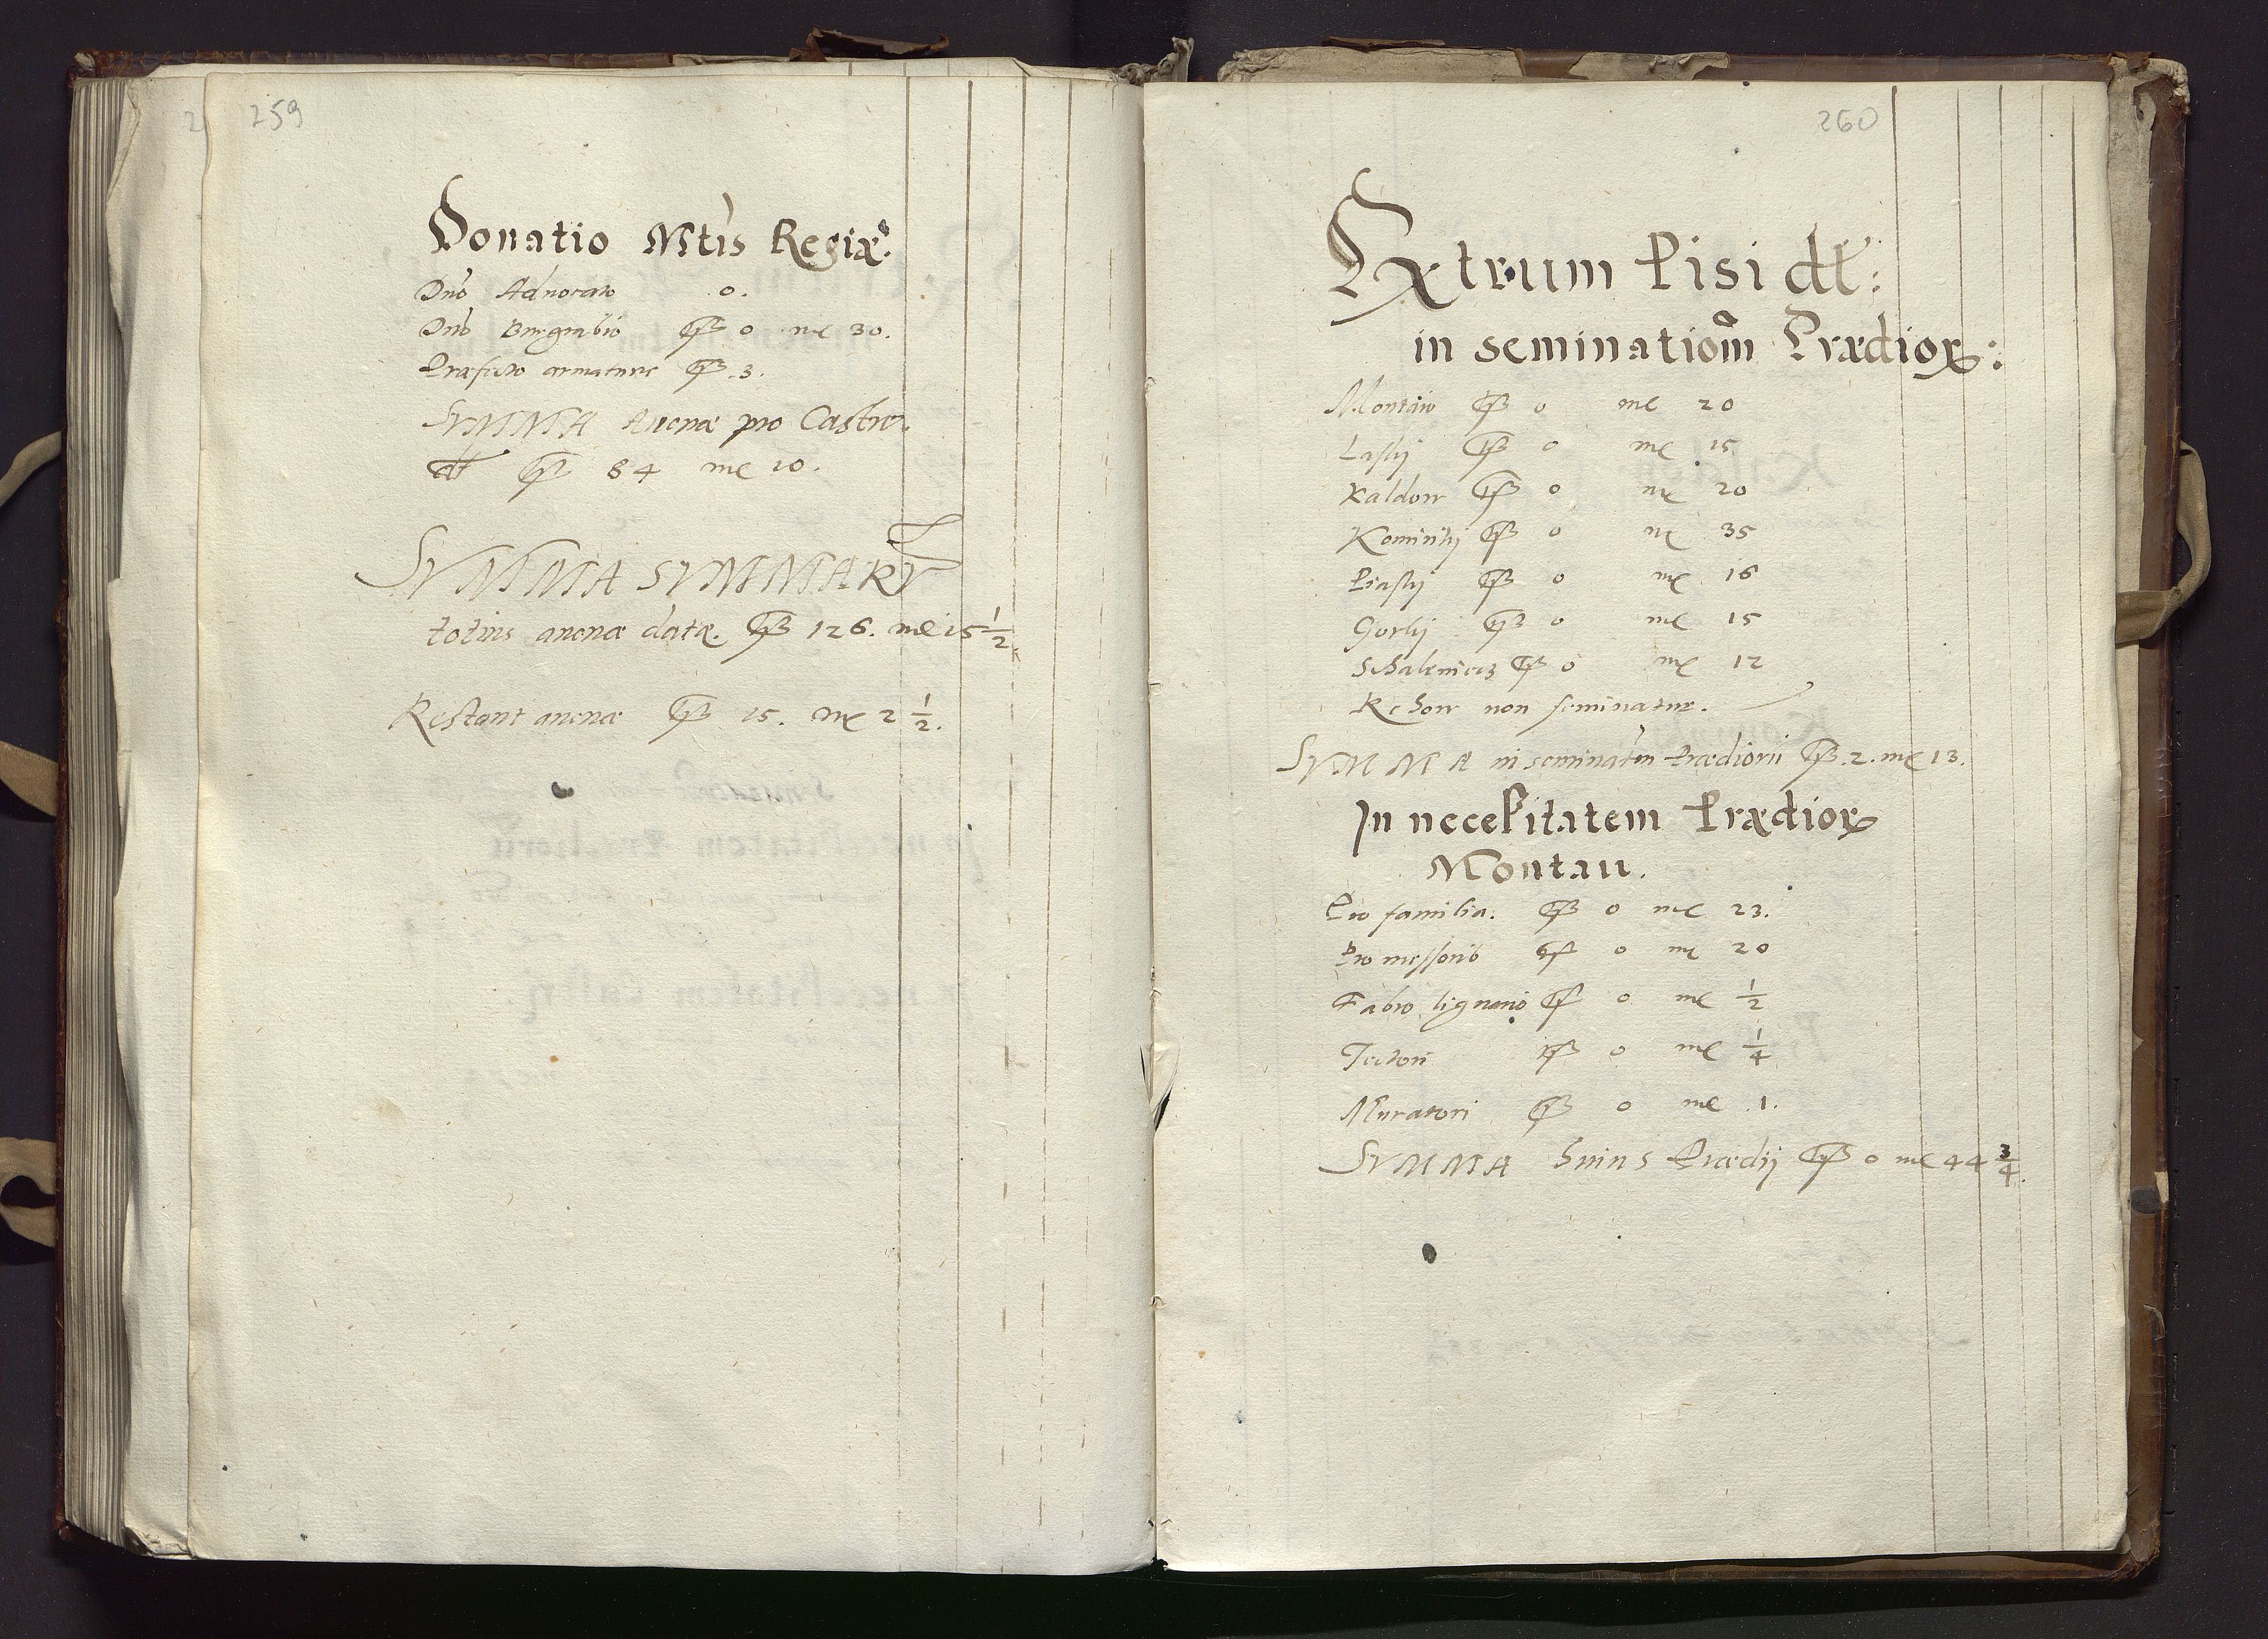 259
Donatio Mtis Regiæ.
Dno Aduocato 0.
Dno Burgrabio 0 me 30.
Præfecto armaturæ 3.
SVMMA Auenæ pro Castro.
dt 84 me 10.
SVMMA SVMMARV
totius auenæ datæ. 126. me 15 1/2
Restant auenæ 15. me 2 1/2.
260
Extrum Pisi dt:
in seminationem Prædior:
Montaw 0 me 20
Lasky 0 me 15
Kaldow 0 me 20
Kominky 0 me 35
Piasky 0 me 16
Gorky 0 me 15
Schalewicz 0 me 12
Kehow non seminatur.
SVMMA in seminatm Prædiorū 2. me 13.
In neceßitatem Prædior
Montau.
Pro familia. 0 me 23.
Pro messorib 0 me 20
Fabro lignario 0 me 1/2
Tectori 0 me 1/4
Muratori 0 me 1.
SVMMA huius Prædij 0 me 44 3/4.